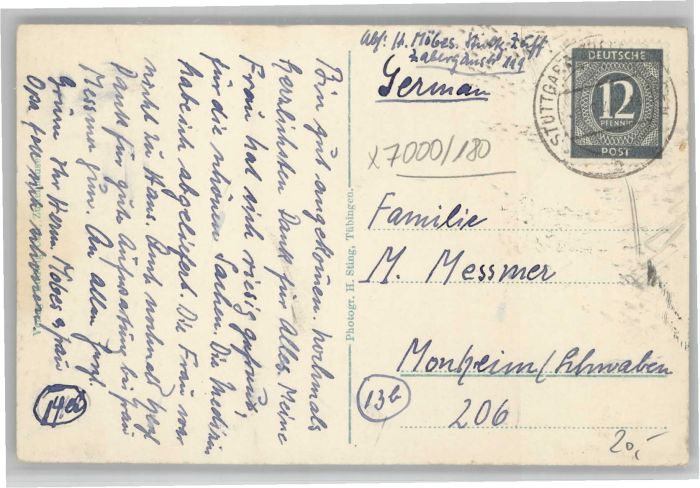 Bin gut angekommen. Nochmals
herzlichsten Dank für Alles. Meine
Frau hat sich riesig gefreut,
für die schönen Sachen. Die Medizin
habe ich abgeliefert. Die Frau war
nicht zu Haus. Auch nochmals herzl.
Dank für gute Aufwartung bei Frau
Messmer Gün. An allen herzl.
Grüsse Ihr Herm. Möbes & Frau
Opa
14a
Photogr. H. Sting, Tübingen.
Abs: H. Möbes. Stuttg. Zuff
Zabergäustr 119
German
DEUTSCHE
12
PFENNIG
POST
STUTTGART
x7000/180
Familie
M. Messmer
Monheim/Schwaben
206
13b
20,-